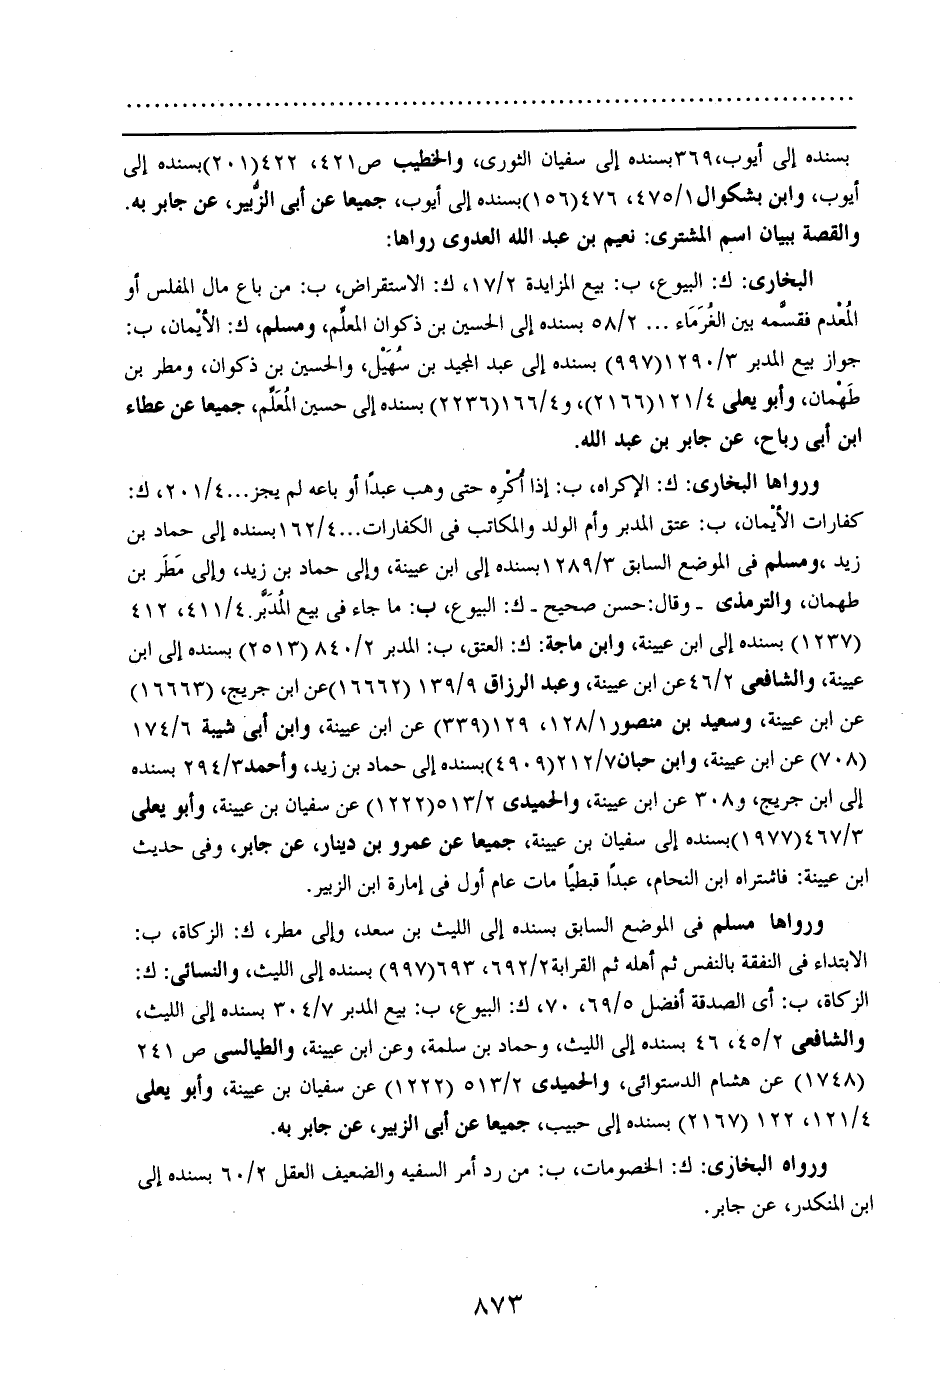 بسنده إلى أيوب،٣٦٩بسنده إلى سفيان الثورى، والخطيب ص٤٢١، ٤٢٢(٢٠١)بسنده إلى
أيوب، وابن بشكوال٤٧٥/١، ٤٧٦(١٥٦)بسنده إلى أيوب، جميعا عن أبى الزُّبير، عن جابر به.
والقصة ببيان اسم المشترى: نعيم بن عبد الله العدوى رواها:
البخارى: ك: البيوع، ب: بيع المزايدة ١٧/٢، ك: الاستقراض، ب: من باع مال المفلس أو
المُعْدم فقسَّمه بين الغُرَمَاء ... ٥٨/٢ بسنده إلى الحسين بن ذكوان المعلِّم، ومسلم، ك: الأيْمان، ب:
جواز بيع المدبر ١٢٩٠/٣(٩٩٧) بسنده إلى عبد المجيد بن سُهَيْل، والحسين بن ذكوان، ومطر بن
طَهْمان، وأبو يعلى ١٢١/٤(٢١٦٦)، و١٦٦/٤(٢٢٣٦) بسنده إلى حسين المُعَلِّم، جميعا عن عطاء
ابن أبى رباح، عن جابر بن عبد الله.
ورواها البخارى: ك: الإكراه، ب: إذا أُكْرِه حتى وهب عبدًا أو باعه لم يجز...٢٠١/٤، ك:
كفارات الأيْمان، ب: عتق المدبر وأم الولد والمكاتب فى الكفارات...١٦٢/٤بسنده إلى حماد بن
زيد ،ومسلم فى الموضع السابق ١٢٨٩/٣بسنده إلى ابن عيينة، وإلى حماد بن زيد، وإلى مَطَر بن
طهمان، والترمذى ـ وقال:حسن صحيح ـ ك: البيوع، ب: ما جاء فى بيع المُدَبَّر.٤١١/٤، ٤١٢
(١٢٣٧) بسنده إلى ابن عيينة، وابن ماجة: ك: العتق، ب: المدبر ٨٤٠/٢ (٢٥١٣) بسنده إلى ابن
عيينة، والشافعى ٤٦/٢عن ابن عيينة، وعبد الرزاق ١٣٩/٩ (١٦٦٦٢)عن ابن جريج، (١٦٦٦٣)
عن ابن عيينة، وسعيد بن منصور١٢٨/١، ١٢٩(٣٣٩) عن ابن عيينة، وابن أبى شيبة ١٧٤/٦
(٧٠٨) عن ابن عيينة، وابن حبان٢١٢/٧(٤٩٠٩)بسنده إلى حماد بن زيد، وأحمد٢٩٤/٣ بسنده
إلى ابن جريج، و٣٠٨ عن ابن عيينة، والحميدى ٥١٣/٢(١٢٢٢) عن سفيان بن عيينة، وأبو يعلى
٤٦٧/٣(١٩٧٧)بسنده إلى سفيان بن عيينة، جميعا عن عمرو بن دينار، عن جابر، وفى حديث
ابن عيينة: فاشتراه ابن النحام، عبدًا قبطيًا مات عام أول فى إمارة ابن الزبير.
ورواها مسلم فى الموضع السابق بسنده إلى الليث بن سعد، وإلى مطر، ك: الزكاة، ب:
الابتداء فى النفقة بالنفس ثم أهله ثم القرابة٦٩٢/٢، ٦٩٣(٩٩٧) بسنده إلى الليث، والنسائى: ك:
الزكاة، ب: أى الصدقة أفضل ٦٩/٥، ٧٠، ك: البيوع، ب: بيع المدبر ٣٠٤/٧ بسنده إلى الليث،
والشافعى ٤٥/٢، ٤٦ بسنده إلى الليث، وحماد بن سلمة، وعن ابن عيينة، والطيالسى ص ٢٤١
(١٧٤٨) عن هشام الدستوائى، والحميدى ٥١٣/٢ (١٢٢٢) عن سفيان بن عيينة، وأبو يعلى
١٢١/٤، ١٢٢ (٢١٦٧) بسنده إلى حبيب، جميعا عن أبى الزبير، عن جابر به.
ورواه البخارى: ك: الخصومات، ب: من رد أمر السفيه والضعيف العقل ٦٠/٢ بسنده إلى
ابن المنكدر، عن جابر.
٨٧٣